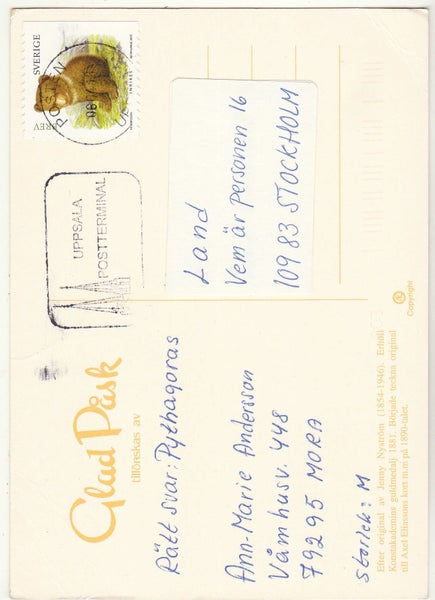 Glad Påsk
tillönskas av
Rätt svar: Pythagoras
Ann-Marie Andersson
Våmhusv. 448
79295 MORA
Storlek: M
Efter original av Jenny Nyström (1854-1946). Erhöll
Konstakademins guldmedalj 1881. Började teckna original
till Axel Eliassons kort m.m på 1890-talet.
SVERIGE
BREV
INRIKES
POSTEN
UPPSALA
POSTTERMINAL
Land
Vem är personen 16
109 83 STOCKHOLM
Copyright